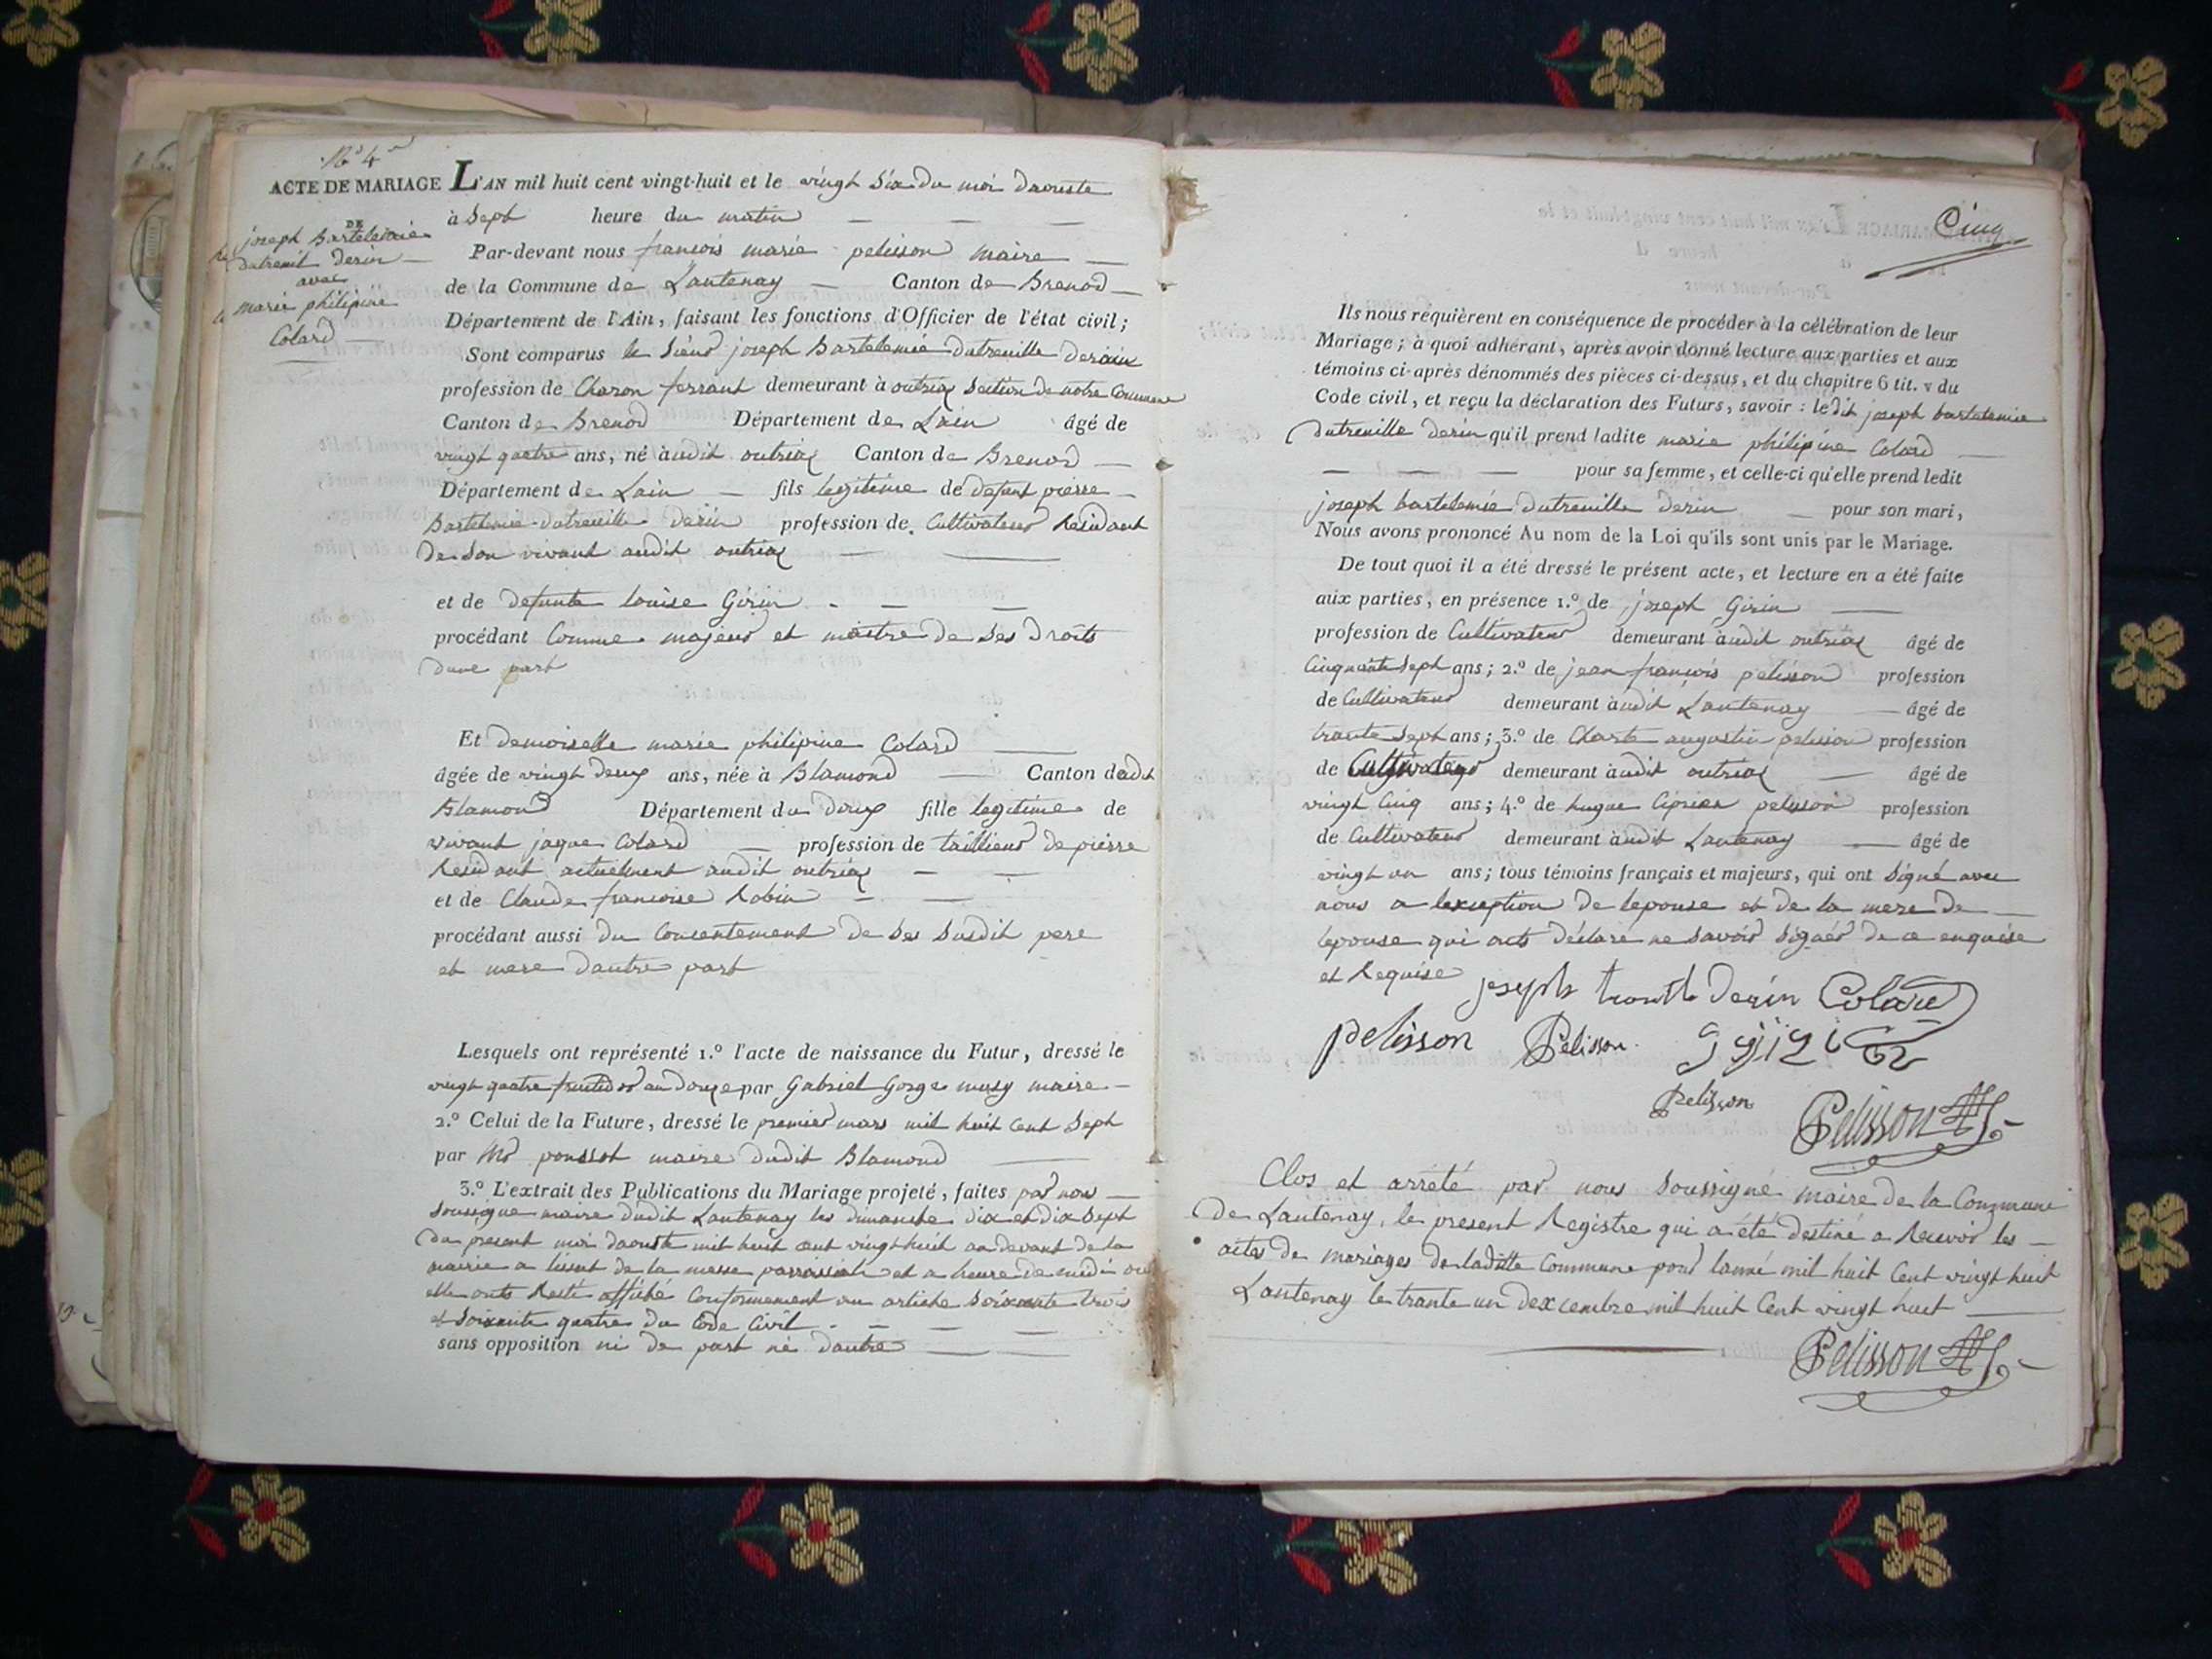 No 4
ACTE DE MARIAGE
DE
joseph Bartelemie
dutreuil derin
avec
marie philipine
Colard
L'AN mil huit cent vingt-huit et le vingt six du moi daouste
à sept heure du matin
Par-devant nous francois marie pelisson maire
de la Commune de Lantenay Canton de Brenod
Département de l'Ain, faisant les fonctions d'Officier de l'état civil;
Sont comparus le sieur joseph Bartelemie dutreuille derin
profession de Charon ferrant demeurant à outriaz section de notre Commune
Canton de Brenod Département de Lain âgé de
vingt quatre ans, né audit outriaz Canton de Brenod
Département de Lain fils legitime de defunt pierre
Bartelemie dutreuille derin profession de Cultivateur Residant
de son vivant audit outriaz
et de defunte louise Girin
procédant Comme majeur et maitre de ses droits
dune part
Et demoiselle marie philipine Colard
âgée de vingt deux ans, née à Blamond Canton dudit
Blamond Département du doux fille legitime de
vivant jaque Colard profession de tailleur de pierre
Residant actuelment audit outriaz
et de Claude francoise Robin
procédant aussi du Consentement de ses susdit pere
et mere dautre part
Lesquels ont représenté 1.º l'acte de naissance du Futur, dressé le
vingt quatre fructidor an douze par Gabriel Gorge musy maire
2.º Celui de la Future, dressé le premier mars mil huit cent sept
par Mr poussot maire dudit Blamond
3.º L'extrait des Publications du Mariage projeté, faites par nous
soussigne maire dudit Lantenay les dimanche dix et dix sept
du present moi daouste mil huit cent vingt huit au devant de la
mairie a lissut de la messe parroissiale et a heure de midi ou
elle onts Resté affiché Conformement au article soixante trois
et soixante quatre du Code Civil
sans opposition ni de part ni dautre
Cinq
Ils nous requièrent en conséquence de procéder à la célébration de leur
Mariage; à quoi adhérant, après avoir donné lecture aux parties et aux
témoins ci-après dénommés des pièces ci-dessus, et du chapitre 6 tit. v du
Code civil, et reçu la déclaration des Futurs, savoir: ledit joseph bartelemie
dutreuille derin qu'il prend ladite marie philipine Colard
pour sa femme, et celle-ci qu'elle prend ledit
joseph bartelemie dutreuille derin pour son mari,
Nous avons prononcé Au nom de la Loi qu'ils sont unis par le Mariage.
De tout quoi il a été dressé le présent acte, et lecture en a été faite
aux parties, en présence 1.º de joseph Girin
profession de Cultivateur demeurant audit outriaz âgé de
Cinquante sept ans; 2.º de jean françois pelisson profession
de Cultivateur demeurant audit Lantenay âgé de
trante sept ans; 3.º de Charle augustin pelisson profession
de Cultivateur demeurant audit outriaz âgé de
vingt Cinq ans; 4.º de hugue Ciprien pelisson profession
de Cultivateur demeurant audit Lantenay âgé de
vingt un ans; tous témoins français et majeurs, qui ont signé avec
nous a lexception de lepouse et de la mere de
lepouse qui onts déclaré ne savoir signér de ce enquise
et Requise
joseph derin Colard
pelisson Pelisson
Pelisson Pelisson
Clos et arrété par nous soussigné maire de la Commune
de Lantenay, le present Registre qui a été destiné a Recevoir les
actes de mariages de laditte Commune pour lanné mil huit Cent vingt huit
Lantenay le trante un dexcembre mil huit Cent vingt huit
Pelisson